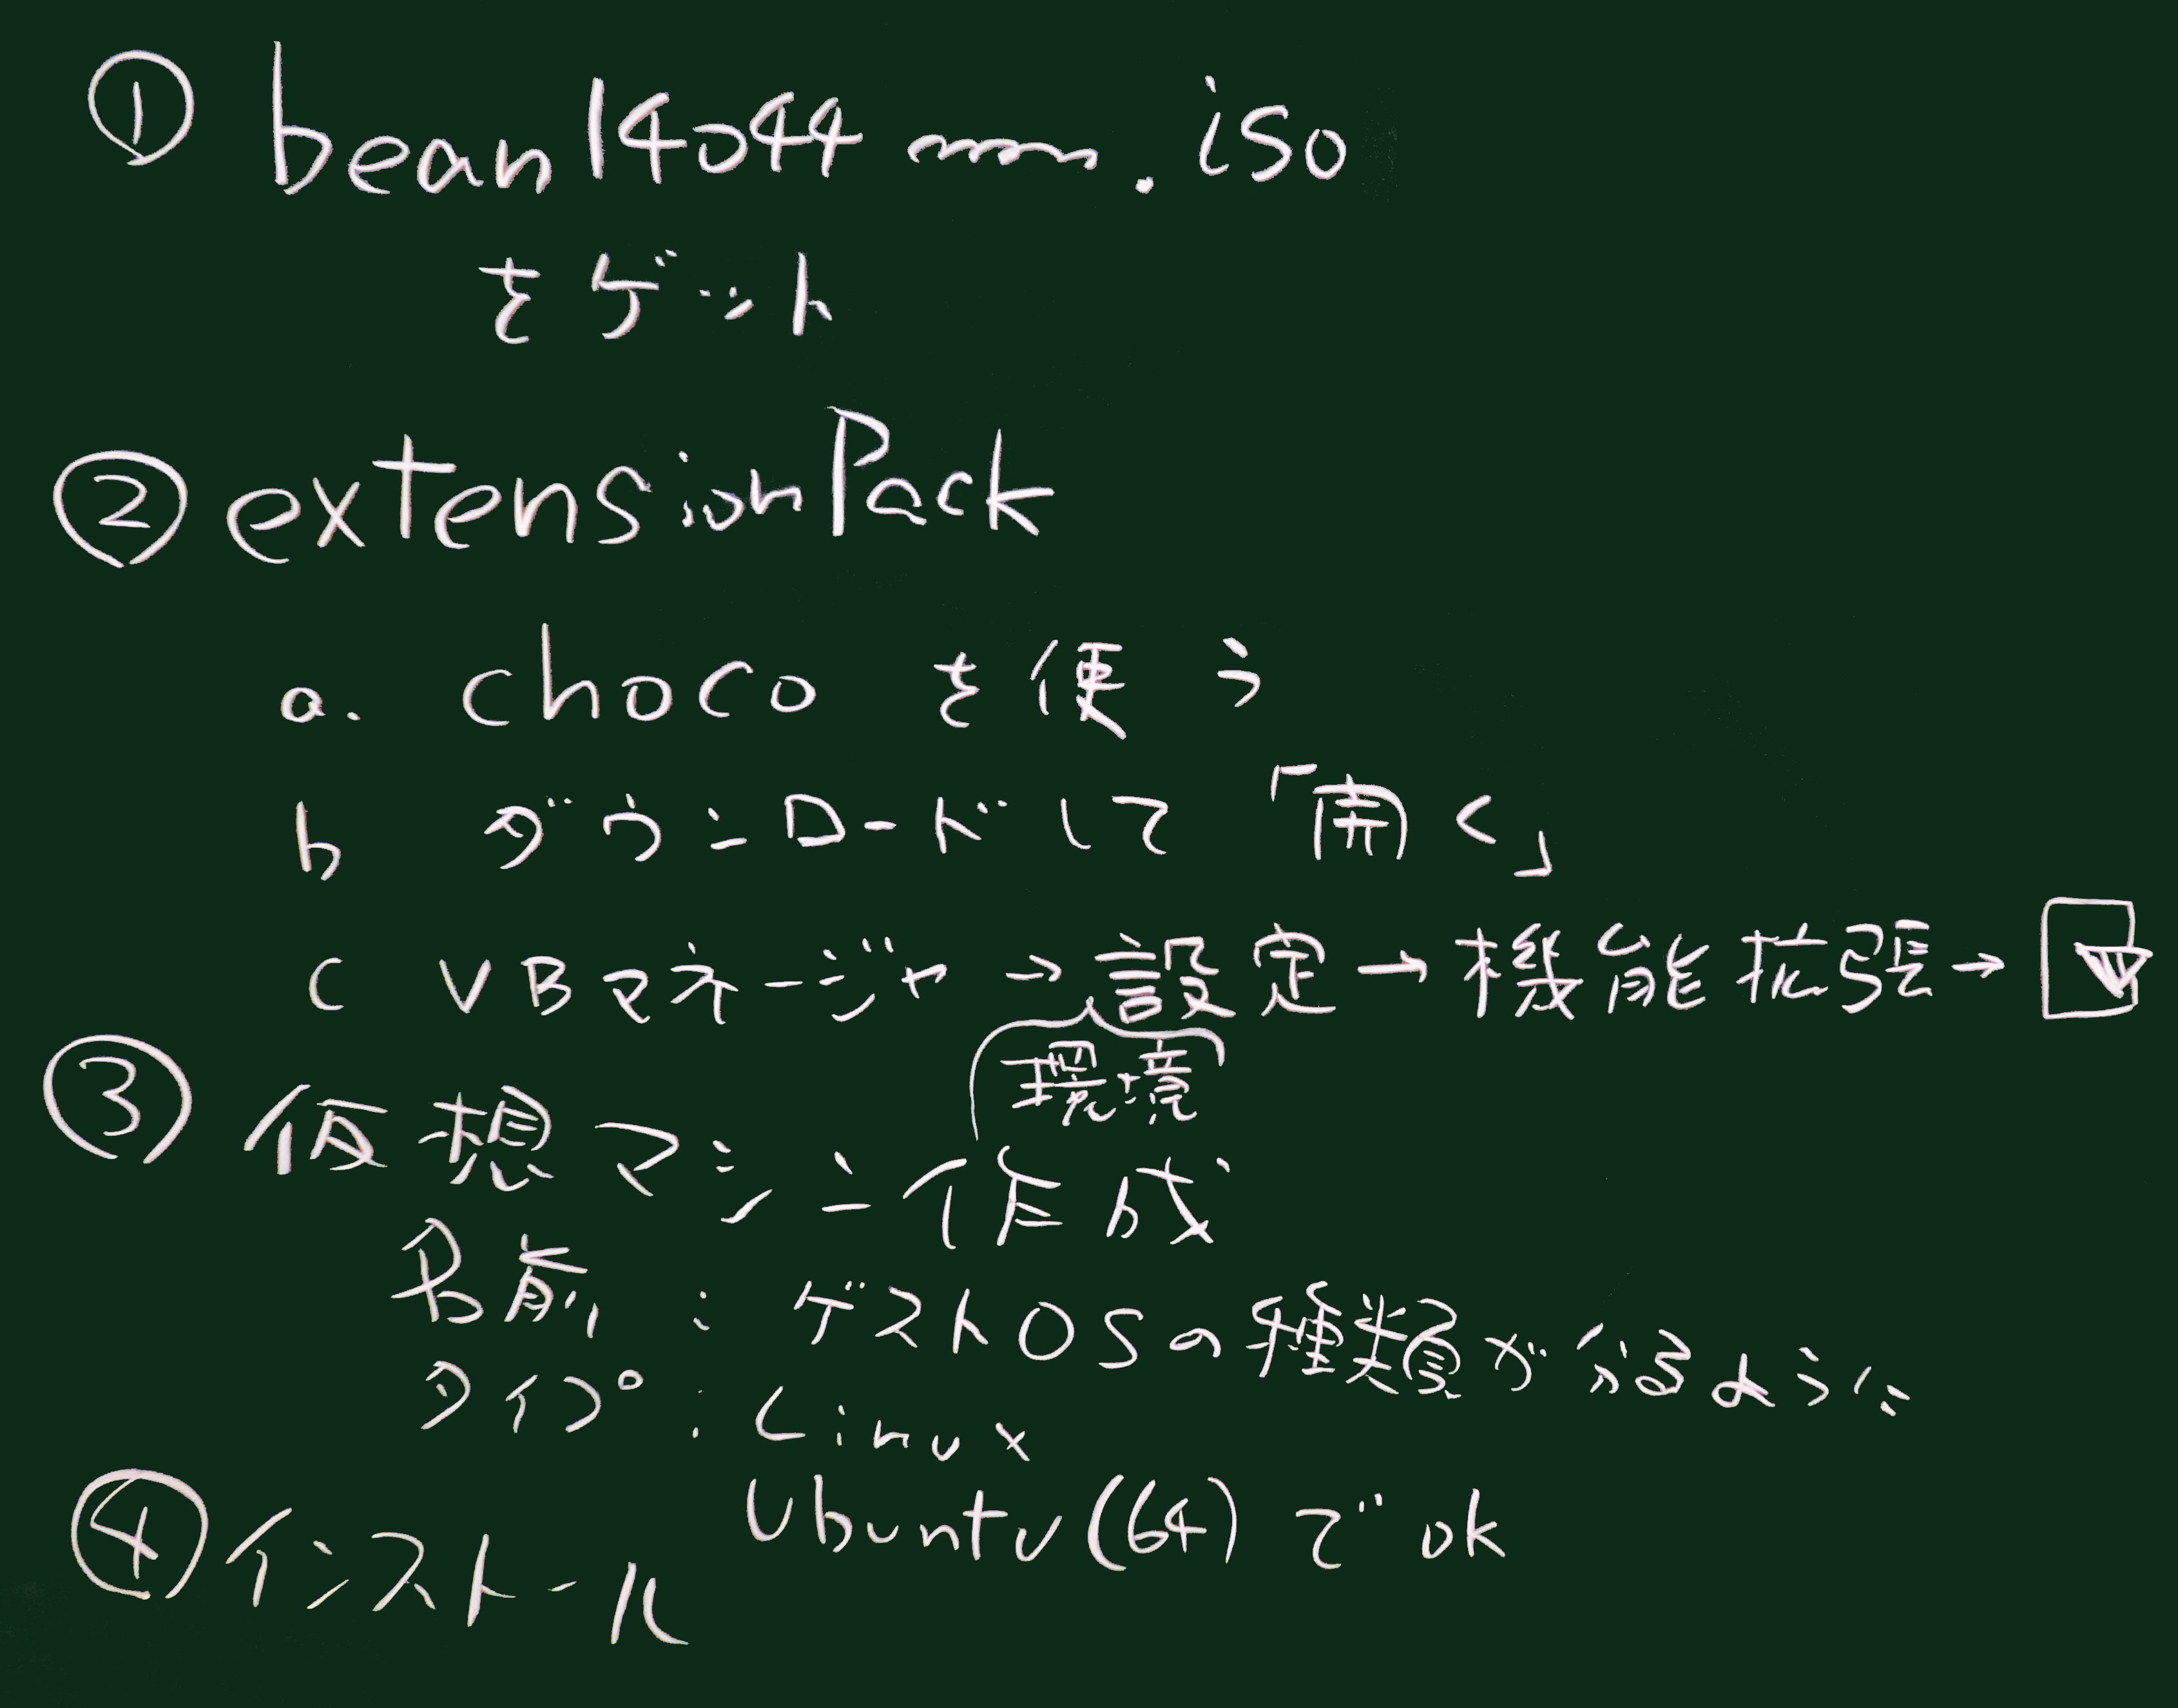 ① bean14044 .iso
をゲット
② extensionPack
a. choco を使う
b ダウンロードして「開く」
c VBマネージャ→設定→機能拡張→
環境
③ 仮想マシン作成
名前:ゲストOSの種類が分るように
タイプ:Linux
Ubuntu(64)でok
④ インストール